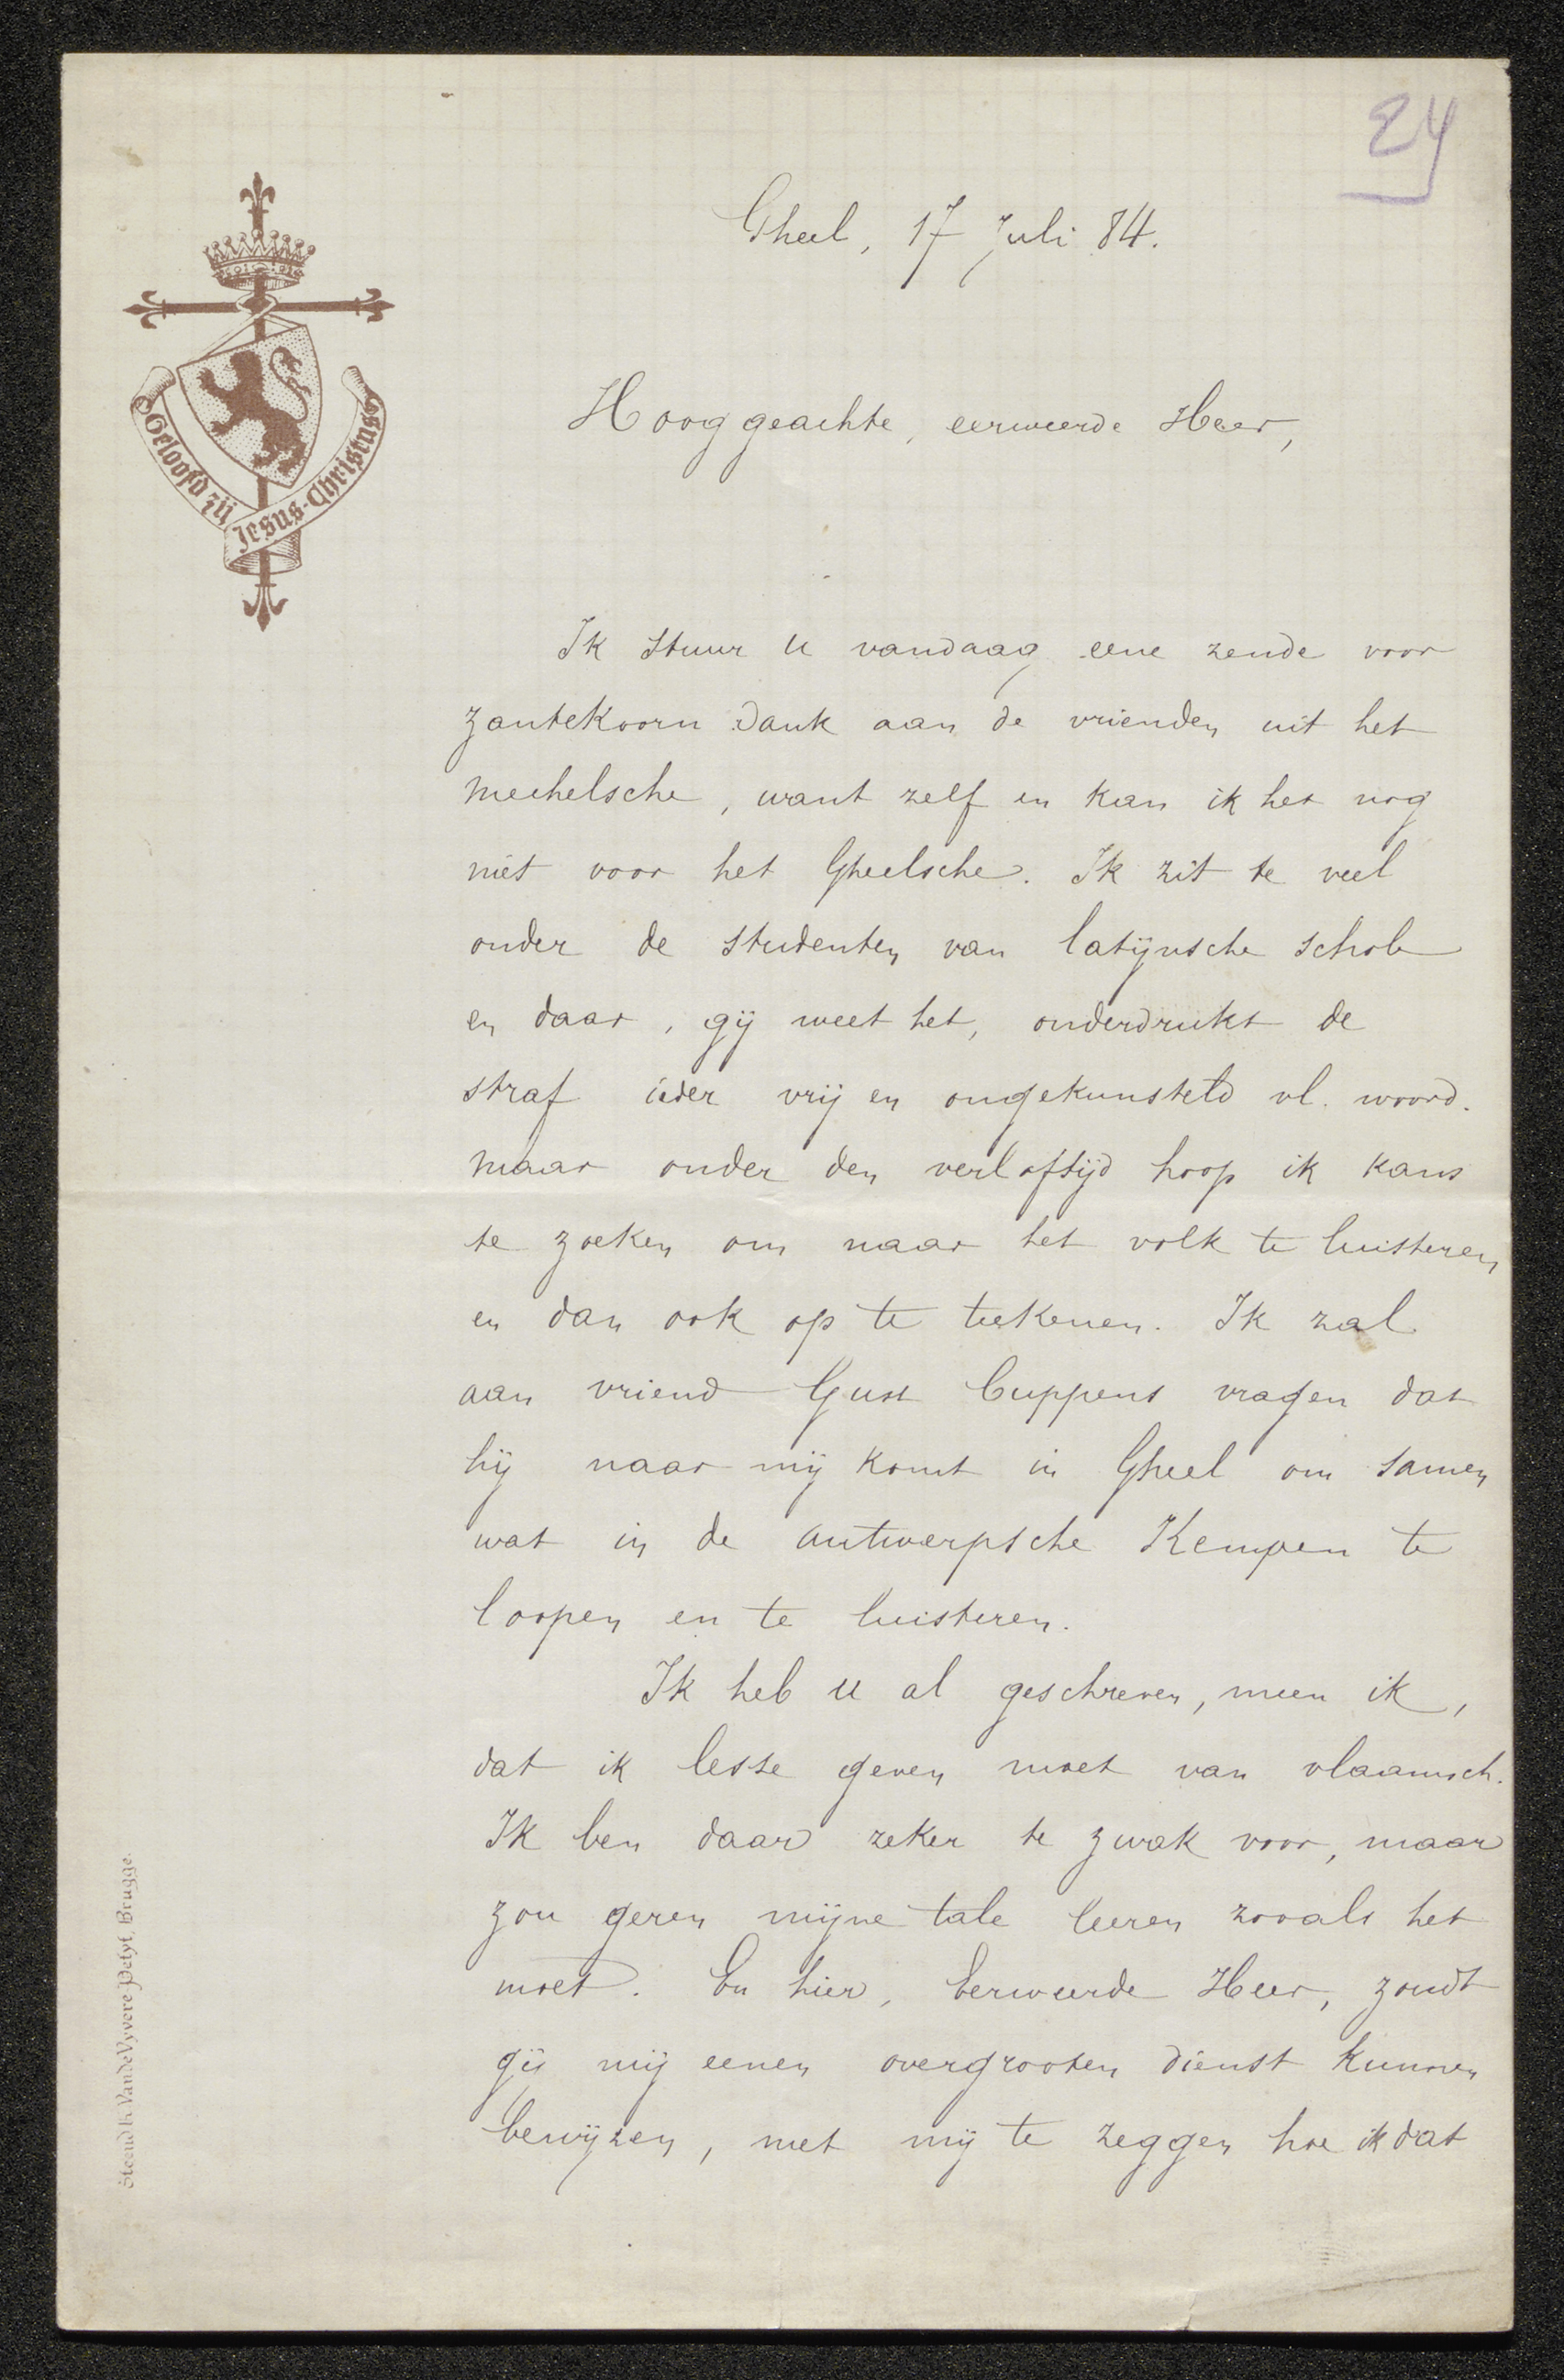 24
Gheel, 17 Juli 84.
Geloofd zij Jesus-Christus
Hooggeachte, eerweerde Heer,
Ik stuur U vandaag eene zende voor
zantekoorn dank aan de vrienden uit het
mechelsche, want zelf en kan ik het nog
niet voor het Gheelsche. Ik zit te veel
onder de studenten van latijnsche schole
en daar, gij weet het, onderdrukt de
straf ieder vrij en ongekunsteld vl. woord.
maar onder den verloftijd hoop ik kans
te zoeken om naar het volk te luisteren
en dan ook op te teekenen. Ik zal
aan vriend Gust Cuppens vragen dat
hij naar mij komt in Gheel om samen
wat in de antwerpsche Kempen te
loopen en te luisteren.
Ik heb U al geschreven, meen ik,
dat ik lesse geven moet van vlaamsch.
Ik ben daar zeker te zwak voor, maar
zou geren mijne tale leeren zooals het
moet. En hier, Eerweerde Heer, zoudt
gij mij eenen overgrooten dienst kunnen
bewijzen, met mij te zeggen hoe ik dat
Steend K. VandeVyvere-Petyt, Brugge.